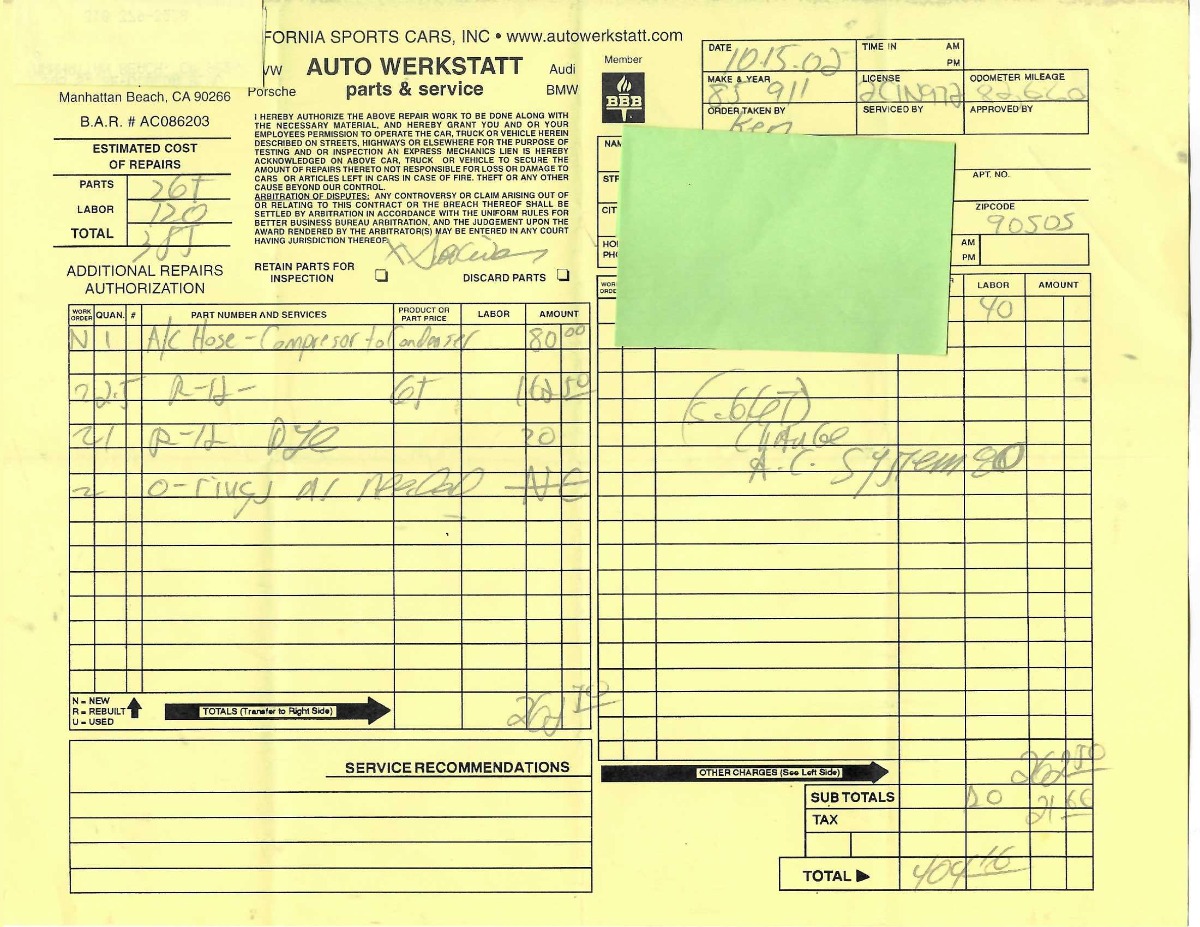 FORNIA SPORTS CARS, INC • www.autowerkstatt.com
VW AUTO WERKSTATT Audi
Porsche parts & service BMW
Manhattan Beach, CA 90266
B.A.R. # AC086203
ESTIMATED COST
OF REPAIRS
PARTS 265
LABOR 120
TOTAL 385
ADDITIONAL REPAIRS
AUTHORIZATION
I HEREBY AUTHORIZE THE ABOVE REPAIR WORK TO BE DONE ALONG WITH
THE NECESSARY MATERIAL, AND HEREBY GRANT YOU AND OR YOUR
EMPLOYEES PERMISSION TO OPERATE THE CAR, TRUCK OR VEHICLE HEREIN
DESCRIBED ON STREETS, HIGHWAYS OR ELSEWHERE FOR THE PURPOSE OF
TESTING AND OR INSPECTION AN EXPRESS MECHANICS LIEN IS HEREBY
ACKNOWLEDGED ON ABOVE CAR, TRUCK OR VEHICLE TO SECURE THE
AMOUNT OF REPAIRS THERETO NOT RESPONSIBLE FOR LOSS OR DAMAGE TO
CARS OR ARTICLES LEFT IN CARS IN CASE OF FIRE. THEFT OR ANY OTHER
CAUSE BEYOND OUR CONTROL.
ARBITRATION OF DISPUTES: ANY CONTROVERSY OR CLAIM ARISING OUT OF
OR RELATING TO THIS CONTRACT OR THE BREACH THEREOF SHALL BE
SETTLED BY ARBITRATION IN ACCORDANCE WITH THE UNIFORM RULES FOR
BETTER BUSINESS BUREAU ARBITRATION, AND THE JUDGEMENT UPON THE
AWARD RENDERED BY THE ARBITRATOR(S) MAY BE ENTERED IN ANY COURT
HAVING JURISDICTION THEREOF.
X
RETAIN PARTS FOR
INSPECTION
DISCARD PARTS
Member
BBB
DATE 10-15-02 TIME IN AM PM
MAKE & YEAR 85 911 LICENSE ODOMETER MILEAGE
ORDER TAKEN BY Ken SERVICED BY APPROVED BY
NAM
STR APT. NO.
CIT ZIPCODE 90505
HO
PH
AM
PM
WORK ORDER QUAN. # PART NUMBER AND SERVICES PRODUCT OR PART PRICE LABOR AMOUNT
N 1 A/C Hose - Compresor to Condenser 80 00
2 2.5 R-12 - 65 162 50
2 1 R-12 DYE 20
2 o-rings as needed NC
N = NEW
R = REBUILT
U = USED
TOTALS (Transfer to Right Side) 262 50
SERVICE RECOMMENDATIONS
WOR
ORDE
LABOR AMOUNT
40
(sublet)
Charge
A.C. System 80
OTHER CHARGES (See Left Side) 262 50
SUB TOTALS 120 21 66
TAX
TOTAL 404 16